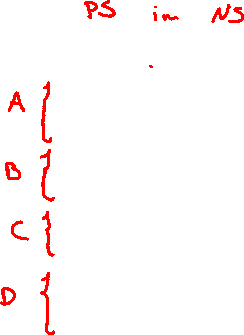 PS in NS
A {
B {
C {
D {